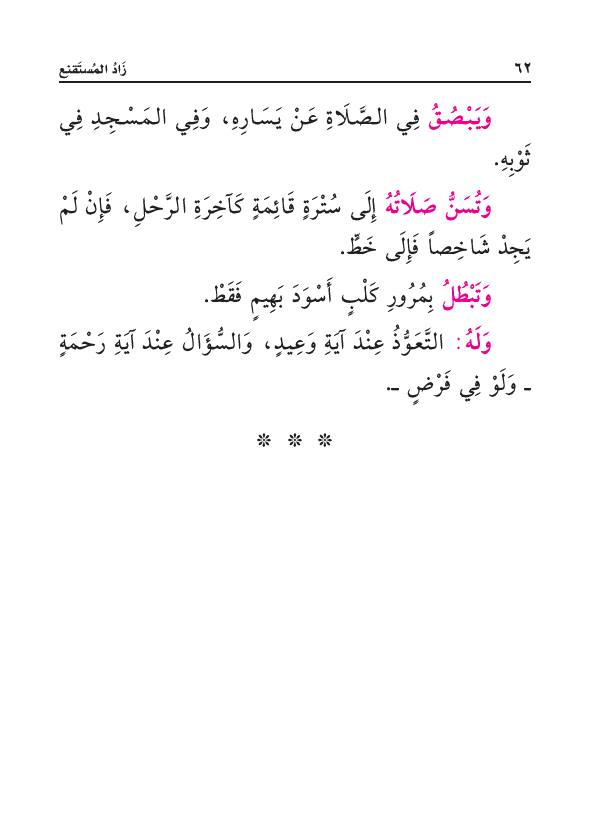 ٦٢ زَادُ المُستَقنِع
وَيَبْصُقُ فِي الصَّلَاةِ عَنْ يَسَارِهِ، وَفِي المَسْجِدِ فِي
ثَوْبِهِ.
وَتُسَنُّ صَلَاتُهُ إِلَى سُتْرَةٍ قَائِمَةٍ كَآخِرَةِ الرَّحْلِ، فَإِنْ لَمْ
يَجِدْ شَاخِصاً فَإِلَى خَطٍّ.
وَتَبْطُلُ بِمُرُورِ كَلْبٍ أَسْوَدَ بَهِيمٍ فَقَطْ.
وَلَهُ: التَّعَوُّذُ عِنْدَ آيَةِ وَعِيدٍ، وَالسُّؤَالُ عِنْدَ آيَةِ رَحْمَةٍ
ـ وَلَوْ فِي فَرْضٍ ـ.